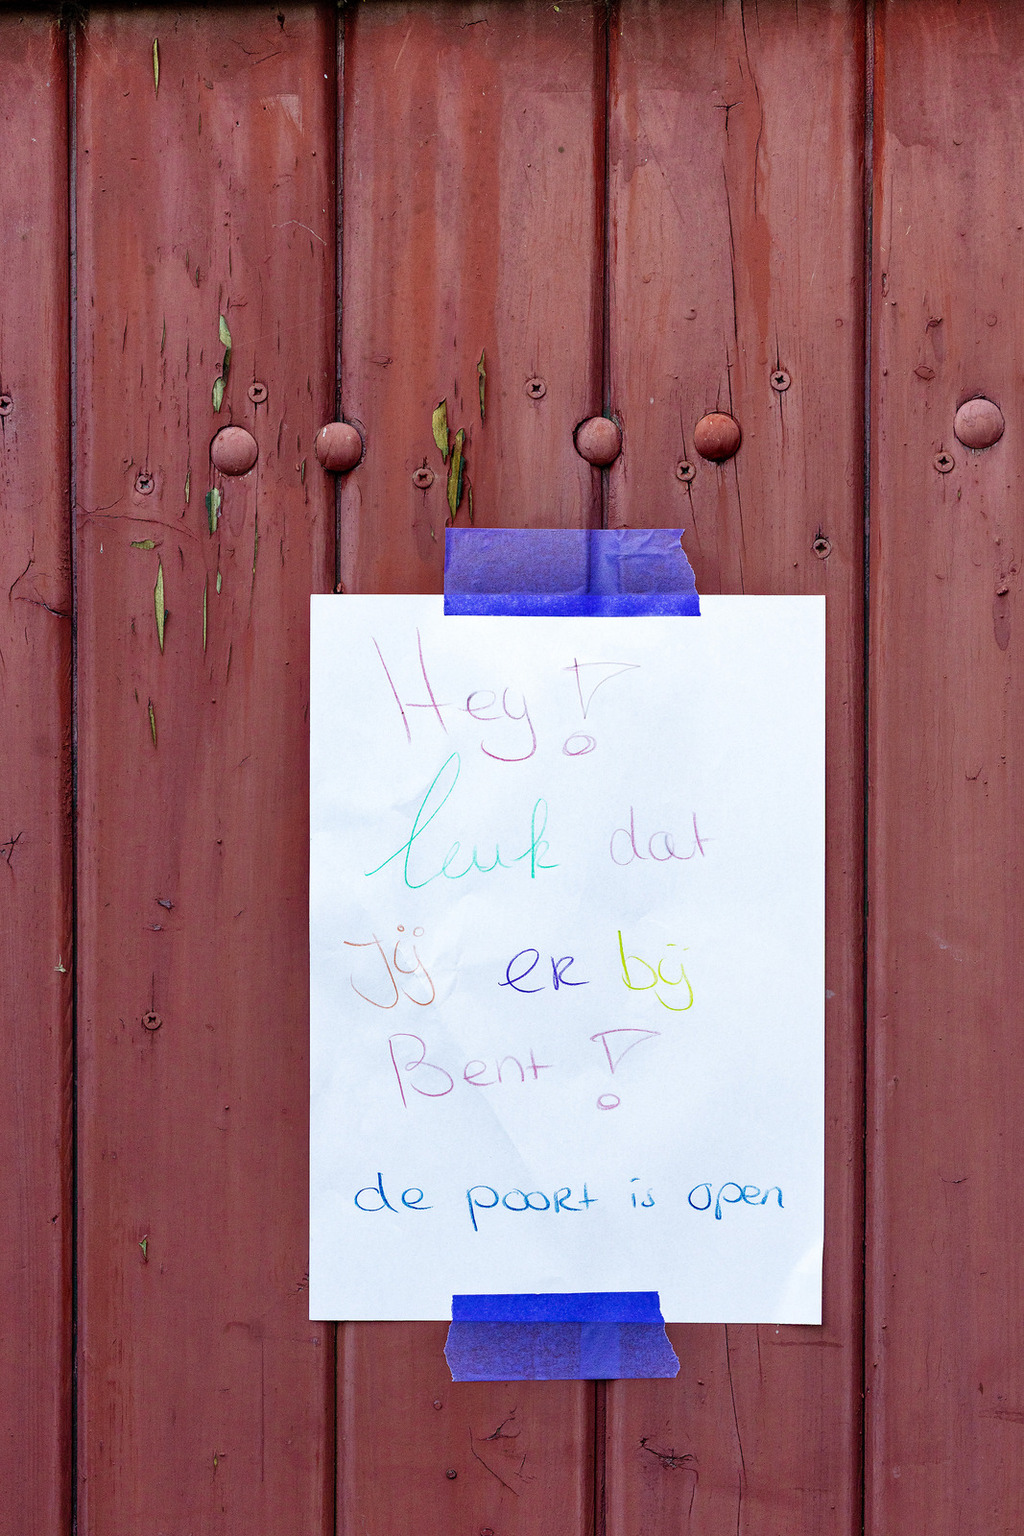 Hey!
leuk dat
Jij er bij
Bent!
de poort is open